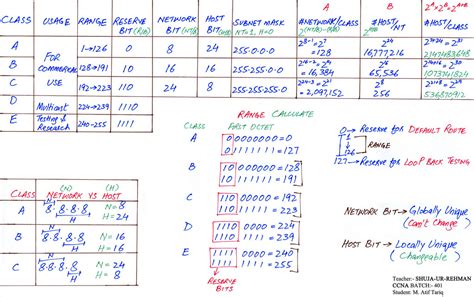 CLASS USAGE RANGE RESERVE BIT(R/B) NETWORK BIT(N/B) HOST BIT(H/B) SUBNET MASK NT=1, H=0 #NETWORK/CLASS #HOST/NT #HOST/CLASS
A B
A 1→126 0 8 24 255.0.0.0 = 128 16,777,216 2147483648
FOR COMMERCIAL USE
B 128→191 10 16 16 255.255.0.0 = 16,384 65,536 1073741824
C 192→223 110 24 8 255.255.255.0 = 2,097,152 256 536870912
D Multicast 224→239 1110
E Testing & Research 240-255 1111
RANGE CALCULATE
CLASS FIRST OCTET
A 00000000=0
01111111=127
B 10000000=128
10111111=191
C 11000000=192
11011111=223
D 11100000=224
11101111=239
E 11110000=240
11111111=255
RESERVE BITS
0→ Reserve for DEFAULT ROUTE
1
↓ RANGE
126
127→Reserve for LOOP BACK Testing
CLASS (N) NETWORK VS HOST (H)
A 8.8.8.8 N=8
H H=24
B 8.8.8.8 N=16
H H=16
C 8.8.8.8 N=24
H H=8
NETWORK BIT→Globally Unique
(Can't Change)
HOST BIT→Locally Unique
(Changeable)
Teacher:- SHUJA-UR-REHMAN
CCNA BATCH:- 401
Student: M. Atif Tariq